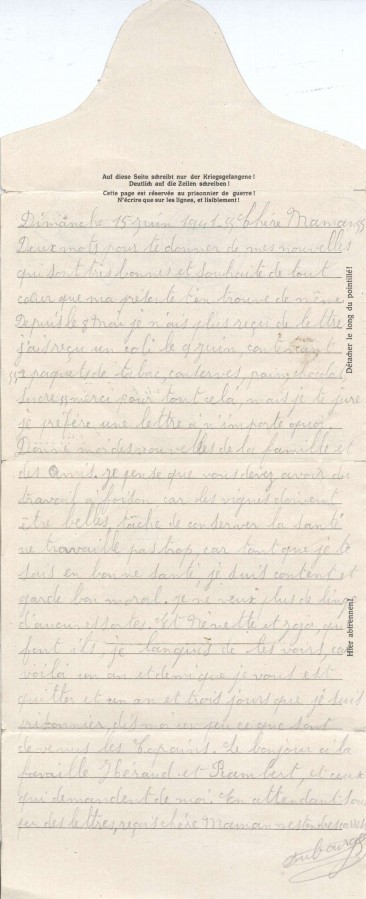 Auf diese Seite schreibt nur der Kriegsgefangene!
Deutlich auf die Zeilen schreiben!
Cette page est réservée au prisonnier de guerre!
N'écrire que sur les lignes, et lisiblement!
Dimanche 15 juin 1941 Chère Maman
Deux mots pour te donner de mes nouvelles
qui sont tres bonnes et souhaite de tout
cœur que ma présente t'en trouve de même
Depuis le 9 Mai je n'ais plus reçu de lettre
j'ais reçu un coli le 9 juin contenant
paquets de tabac, conserves, pain, chocolat
sucre merci pour tout cela, mais je te jure
je préfère une lettre a n'importe quoi.
Donne moi des nouvelles de la famille et
des Amis. Je pense que vous devez avoir du
travail a foison car les vignes doivent
être belles, tâche de conserver la santé
ne travaille pas trop, car tant que je te
sais en bonne santé je suis content et
garde bon moral. Je ne veux plus de
d'aucunes sortes. Et Nénette et que
font ils, je languis de les voirs, car
voilà un an et demi que je vous est
quitter et un an et trois jours que je suis
prisonnier, dis moi un peu ce que sont
devenus les Copains. Le bonjour a la
famille Théraud et Rambert, et ceux
qui demandent de moi. En attendant
des lettres, reçois chère Maman mes tendres
Détacher le long du pointillé!
Hier abtrennen!